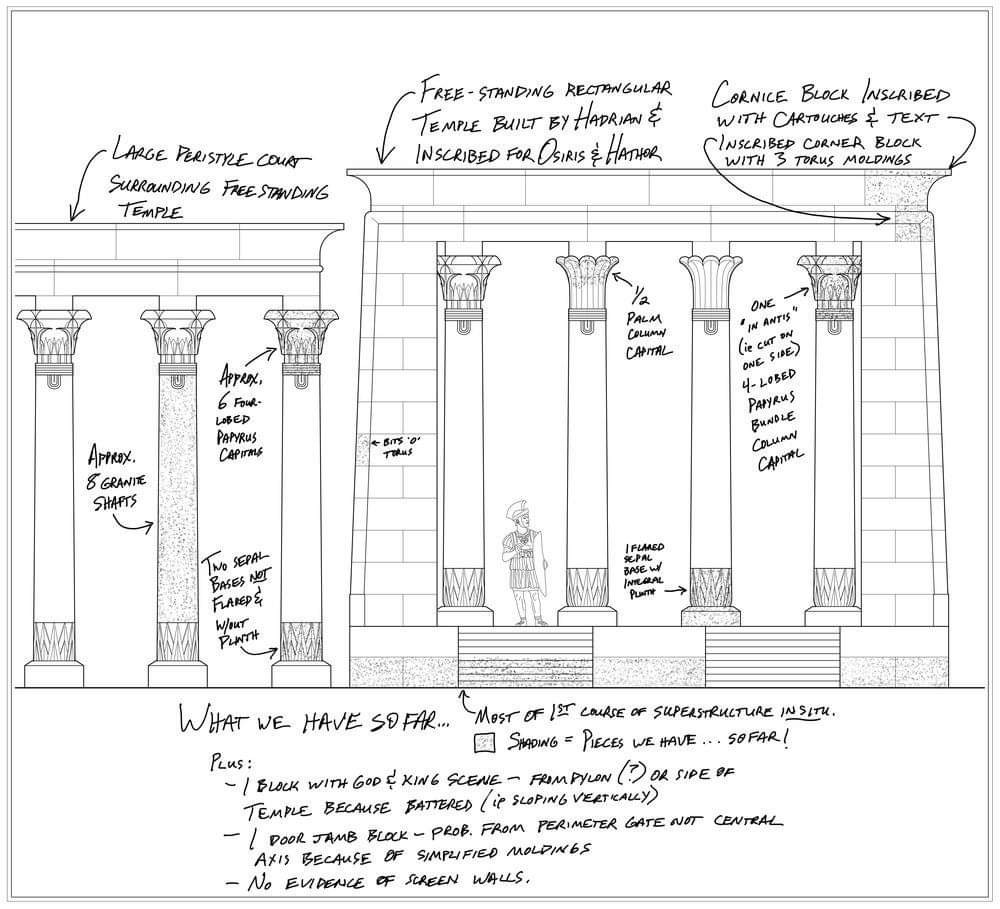 FREE-STANDING RECTANGULAR
TEMPLE BUILT BY HADRIAN &
INSCRIBED FOR OSIRIS & HATHOR
CORNICE BLOCK INSCRIBED
WITH CARTOUCHES & TEXT
INSCRIBED CORNER BLOCK
WITH 3 TORUS MOLDINGS
LARGE PERISTYLE COURT
SURROUNDING FREESTANDING
TEMPLE
1/2
PALM
COLUMN
CAPITAL
ONE
"IN ANTIS"
(ie CUT ON
ONE SIDE)
4-LOBED
PAPYRUS
BUNDLE
COLUMN
CAPITAL
APPROX.
6 FOUR-
LOBED
PAPYRUS
CAPITALS
BITS 'O'
TORUS
APPROX.
8 GRANITE
SHAFTS
TWO SEPAL
BASES NOT
FLARED &
W/OUT
PLINTH
1 FLARED
SEPAL
BASE W/
INTEGRAL
PLINTH
WHAT WE HAVE SO FAR...
MOST OF 1ST COURSE OF SUPERSTRUCTURE IN SITU.
SHADING = PIECES WE HAVE ... SO FAR!
PLUS:
- 1 BLOCK WITH GOD & KING SCENE - FROM PYLON (?) OR SIDE OF
TEMPLE BECAUSE BATTERED (ie SLOPING VERTICALLY)
- 1 DOOR JAMB BLOCK - PROB. FROM PERIMETER GATE NOT CENTRAL
AXIS BECAUSE OF SIMPLIFIED MOLDINGS
- NO EVIDENCE OF SCREEN WALLS.